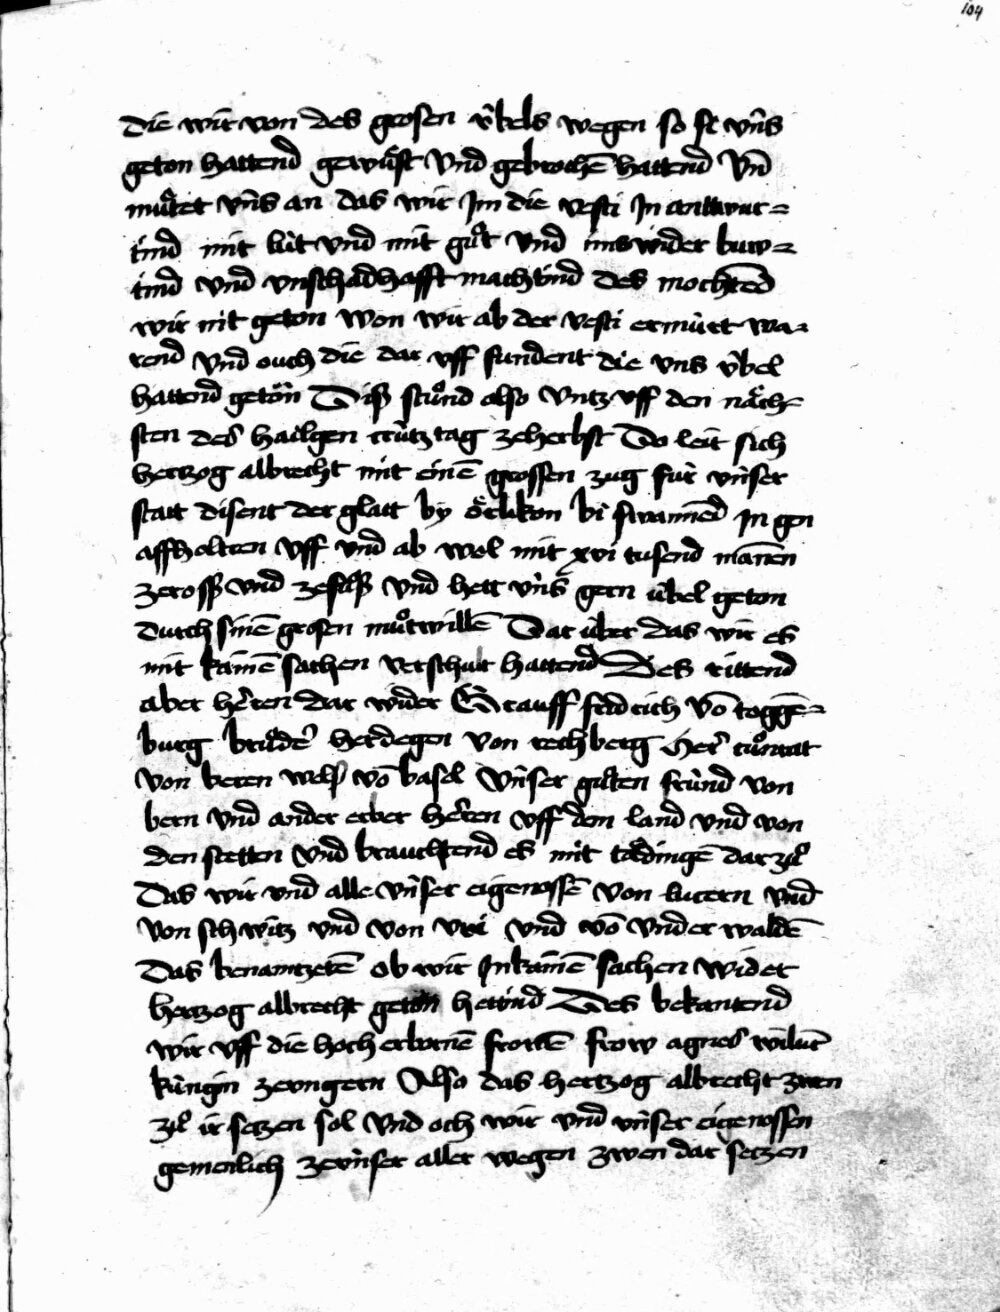 104
die wir von des grosen v̂bels wegen so si vn̂s
geton hattend gewuͤst vnd gebrochē hattend Vn̄
muͤtet vn̂s an das wir Jm die vesti Jn antwur=
tind mit lût vnd mit guͦt vnd ims wider buw=
tind vnd vnschadhafft machtind des mochtēd
wir nit geton won wir ab der vesti ermûrt wa-
rend vnd ouch die dar vff fundent die vns v̂bel
hattend getön Diß stuͦnd also vntz vff den näch-
sten des hailgen crûtz tag zeherbst Do leit sich
hertzog albrecht mit einē grossen zug fûr vn̂ser
statt disent der glatt by örlikon bi swamēd in gen
affholtren vff vnd ab wol mit xvi tusend manen
zeross vnd zefuß vnd hett vn̂s gern ûbel geton
durch sinē grosen muͦtwillē Dar ûber das wir es
mit kainē sachen verschult hattend Des rittend
aber heren dar wider Grauff fridrich vō togge=
burg bruͦder herdegen von rechberg her cuͦnrat
von beren wels vō basel vn̂ser guͦten frûnd von
bern vnd ander erber heren vff dem land vnd von
den stetten vnd brauchtend es mit tädingē dar zuͦ
Das wir vnd alle vn̂ser eigenossē von lucern vnd
von schwitz vnd von vri vnd vō vnderwaldē
Das benamtzetē ob wir Jn kainē sachen wider
hertzog albrecht geton hettind Des bekantend
wir vff die hocherbornē frowē frow agnes wilunt
kûngin zevngern Also das hertzog albrecht zwen
zuͦ ir setzen sol vnd och wir vnd vn̂ser eigenossen
gemeilich zevn̂ser aller wegen zwen dar setzen